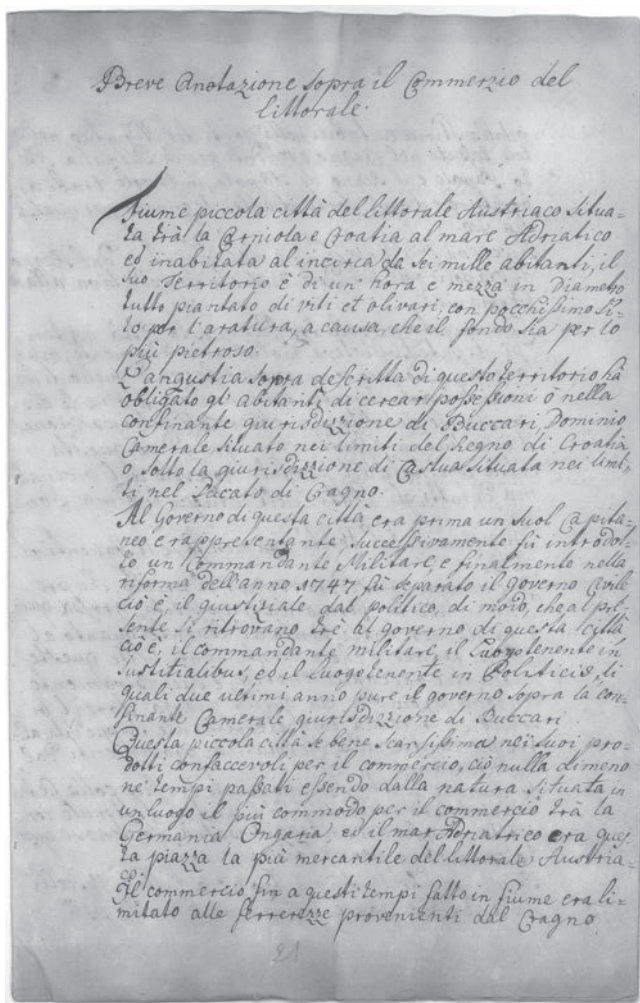 Breve Anotazione sopra il Commerzio del
littorale.
Fiume piccola città del littorale Austriaco situa-
ta trà la Crniola e Croatia al mare Adriatico
ed inabitata al incirca da sei mille abitanti, il
suo Territorio è di un' hora e mezza in Diametro
tutto piantato di viti et olivari, con pocchissimo si-
to per l'aratura, a causa, che il fondo sia per lo
più pietroso.
L'angustia sopra descritta di questo territorio hà
obligato gl' abitanti di cercar possessioni o nella
confinante giurisdizzione di Buccari, Dominio
Camerale situato nei limiti del Regno di Croatia
o sotto la giurisdizzione di Castua situata nei limi-
ti nel Ducato di Cragno.
Al Governo di questa città era prima un suol Capita-
neo e rappresentante, successivamente fù introdot-
to un Commandante Militare, e finalmente nella
riforma dell'anno 1747 fù separato il governo Civile
ciò è, il giustiziale dal politico, di modo, che al pre-
sente si ritrovano trè al governo di questa città
ciò è, il commandante militare, il Luogotenente in
Justitialibus, ed il Luogotenente in Politicis, li
quali due ultimi anno pure il governo sopra la con-
finante Camerale giurisdizzione di Buccari.
Questa piccola città se bene scarsissima nei suoi pro-
dotti confaccevoli per il commercio, ciò nulla dimeno
ne' tempi passati essendo dalla natura situata in
un luogo il più commodo per il commercio trà la
Germania Ongaria, ed il mar Adriatrico era ques-
ta piazza la più mercantile del littorale Austria-
co.
Il commercio fin a questi tempi fatto in fiume era li-
mitato alle ferrerezze provenienti dal Cragno
21